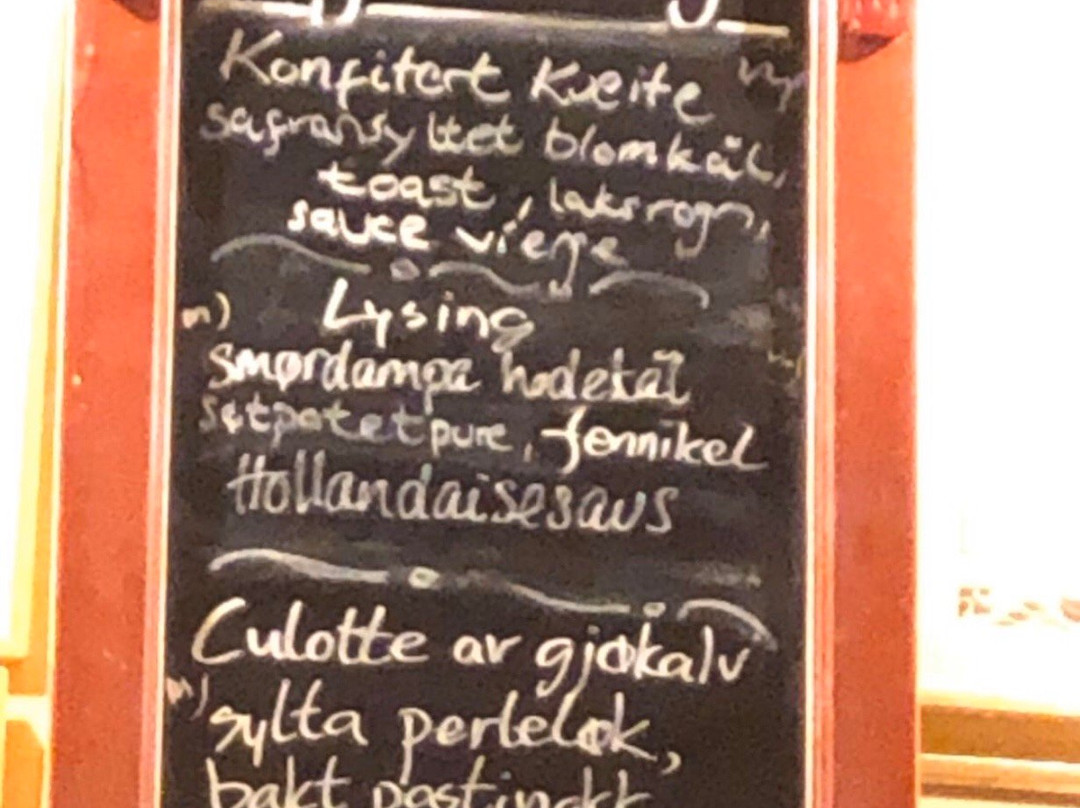 Konfitert Kveite m/
safransyltet blomkål,
toast, laksrogn,
sauce vierge
Lysing
m) smørdampa hodekål m)
søtpotetpure, fennikel
Hollandaisesaus
Culotte av gjøkalv
m) sylta perleløk,
bakt pastinakk